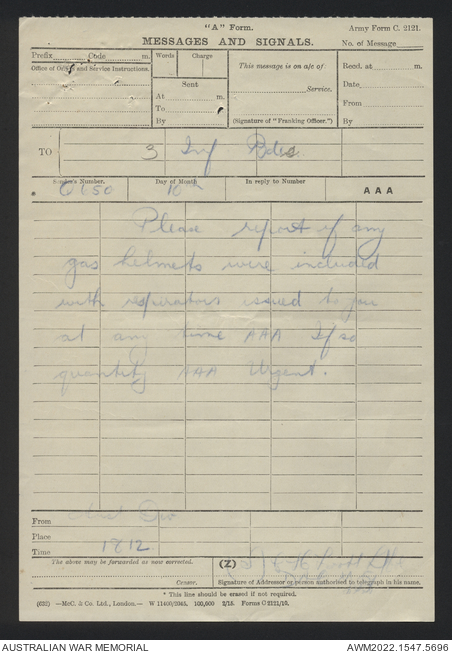 "A" Form. Army Form C. 2121.
MESSAGES AND SIGNALS. No. of Message
Prefix Code m. Words Charge This message is on a/c of: Recd. at m.
Office of Origin and Service Instructions. Sent Service. Date
At m. From
To
By (Signature of "Franking Officer.") By
TO 3 Inf Bdes
Sender's Number. Day of Month In reply to Number AAA
10th
Please report if any
gas helmets were included
with respirators issued to you
at any time AAA If so
quantity AAA Urgent.
From
Place
Time 1812
The above may be forwarded as now corrected. (Z)
Censor. Signature of Addressor or person authorised to telegraph in his name.
* This line should be erased if not required.
(632) —McC. & Co. Ltd., London.— W 11400/2045. 100,000 2/15. Forms C2121/10.
AUSTRALIAN WAR MEMORIAL AWM2022.1547.5696